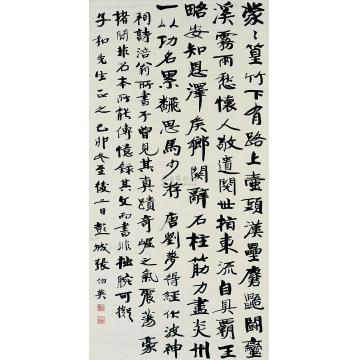 蒙〻篁竹下有路上壺頭漢壘麏鼯鬭蠻
溪霧雨愁懷人敬遺閱世指東流自具霸王
略安知恩澤矦鄉關辭石柱筋力盡炎州
一以功名累飜思馬少游 唐劉夢得經伏波神
祠詩涪翁所書予曾見其真蹟奇崛之氣震蕩豪
楮間非石本所能傳憶録其文而書非拙腕可擬
子和先生正之己卯冬至後二日彭城張伯英